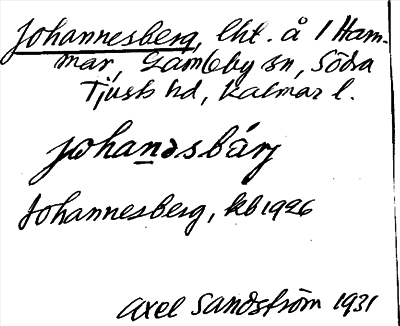 Johannesberg, lht. å 1 Ham-
mar, Gamleby sn, Södra
Tjusts hd, Kalmar l.
johanəsbärj
Johannesberg, kb 1926
Axel Sandström 1931